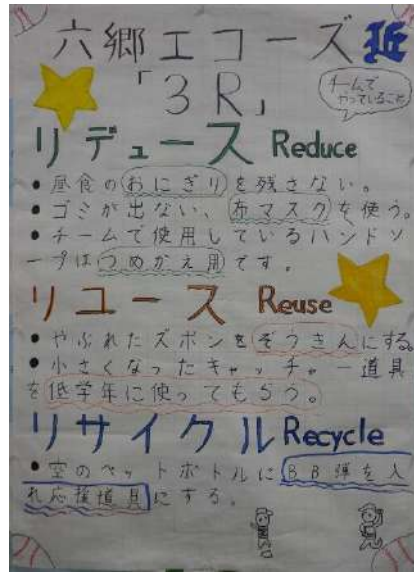 六郷エコーズ
「3R」
チームで
やっていること
リデュース Reduce
• 昼食のおにぎりを残さない。
• ゴミが出ない、布マスクを使う。
• チームで使用しているハンドソ
ープはつめかえ用です。
リユース Reuse
• やぶれたズボンをぞうきんにする。
• 小さくなったキャッチャー道具
を低学年に使ってもらう。
リサイクル Recycle
• 空のペットボトルにBB弾を入
れ応援道具にする。